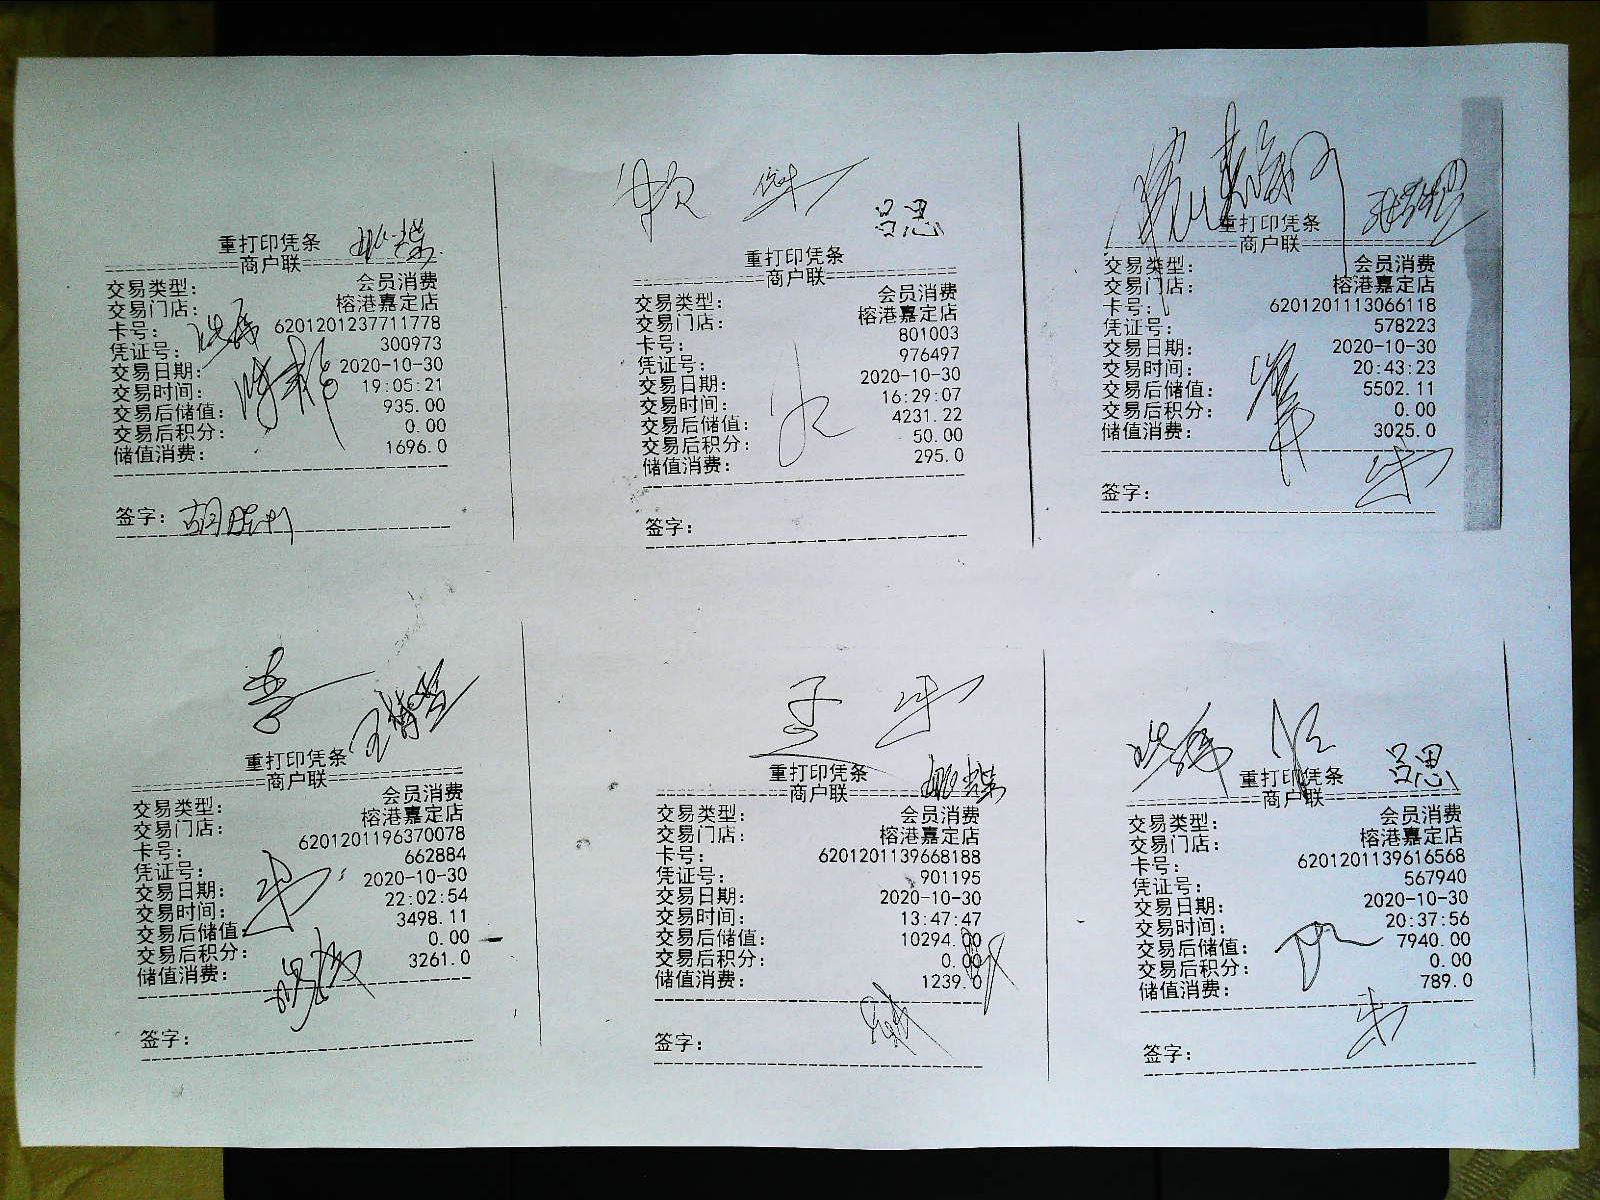 重打印凭条
商户联
交易类型： 会员消费
交易门店： 榕港嘉定店
卡号： 6201201237711778
凭证号： 300973
交易日期： 2020-10-30
交易时间： 19:05:21
交易后储值： 935.00
交易后积分： 0.00
储值消费： 1696.0
签字：
吕思
重打印凭条
商户联
交易类型： 会员消费
交易门店： 榕港嘉定店
卡号： 801003
凭证号： 976497
交易日期： 2020-10-30
交易时间： 16:29:07
交易后储值： 4231.22
交易后积分： 50.00
储值消费： 295.0
签字：
重打印凭条
商户联
交易类型： 会员消费
交易门店： 榕港嘉定店
卡号： 6201201113066118
凭证号： 578223
交易日期： 2020-10-30
交易时间： 20:43:23
交易后储值： 5502.11
交易后积分： 0.00
储值消费： 3025.0
签字：
重打印凭条
商户联
交易类型： 会员消费
交易门店： 榕港嘉定店
卡号： 6201201196370078
凭证号： 662884
交易日期： 2020-10-30
交易时间： 22:02:54
交易后储值： 3498.11
交易后积分： 0.00
储值消费： 3261.0
签字：
重打印凭条
商户联
交易类型： 会员消费
交易门店： 榕港嘉定店
卡号： 6201201139668188
凭证号： 901195
交易日期： 2020-10-30
交易时间： 13:47:47
交易后储值： 10294.00
交易后积分： 0.00
储值消费： 1239.0
签字：
吕思
重打印凭条
商户联
交易类型： 会员消费
交易门店： 榕港嘉定店
卡号： 6201201139616568
凭证号： 567940
交易日期： 2020-10-30
交易时间： 20:37:56
交易后储值： 7940.00
交易后积分： 0.00
储值消费： 789.0
签字：